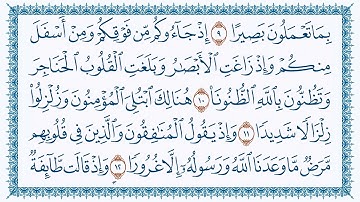 بِمَا تَعْمَلُونَ بَصِيرًا ٩ إِذْ جَآءُوكُم مِّن فَوْقِكُمْ وَمِنْ أَسْفَلَ
مِنكُمْ وَإِذْ زَاغَتِ ٱلْأَبْصَٰرُ وَبَلَغَتِ ٱلْقُلُوبُ ٱلْحَنَاجِرَ
وَتَظُنُّونَ بِٱللَّهِ ٱلظُّنُونَا۠ ١٠ هُنَالِكَ ٱبْتُلِيَ ٱلْمُؤْمِنُونَ وَزُلْزِلُوا۟
زِلْزَالًا شَدِيدًا ١١ وَإِذْ يَقُولُ ٱلْمُنَٰفِقُونَ وَٱلَّذِينَ فِى قُلُوبِهِم
مَّرَضٌ مَّا وَعَدَنَا ٱللَّهُ وَرَسُولُهُۥٓ إِلَّا غُرُورًا ١٢ وَإِذْ قَالَت طَّآئِفَةٌ